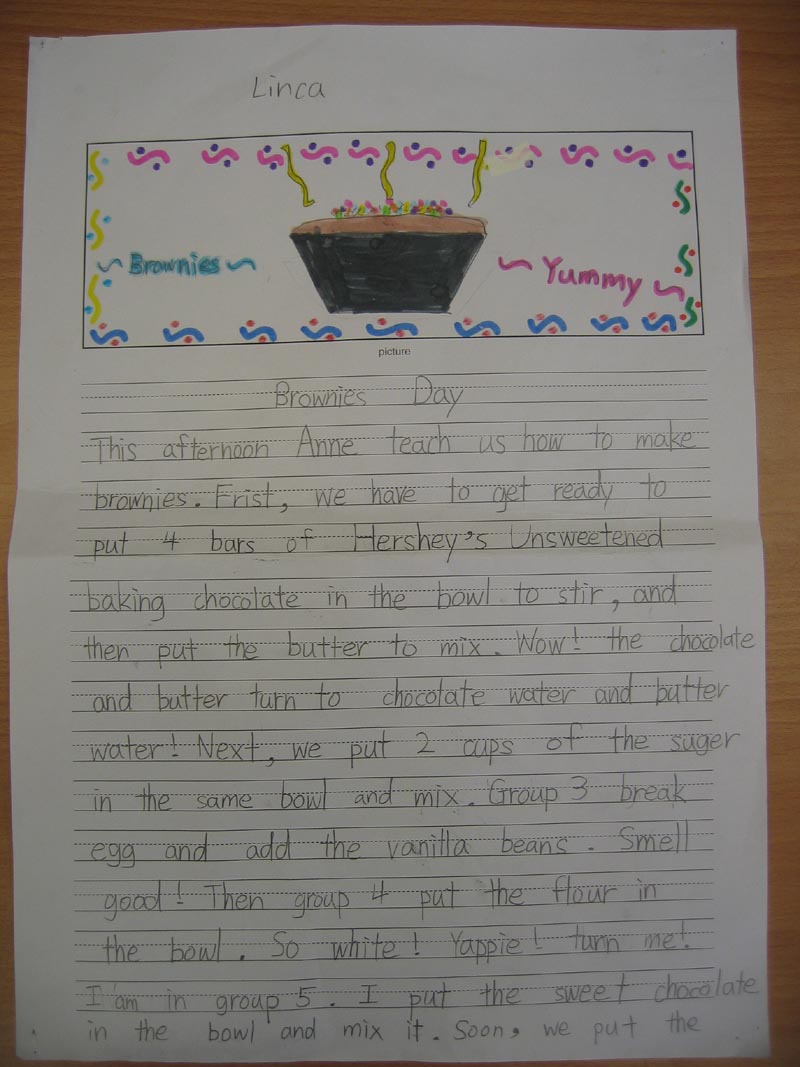 Linca
Brownies
Yummy
picture
Brownies Day
This afternoon Anne teach us how to make
brownies. Frist, we have to get ready to
put 4 bars of Hershey's Unsweetened
baking chocolate in the bowl to stir, and
then put the butter to mix. Wow! the chocolate
and butter turn to chocotate water and butter
water! Next, we put 2 cups of the suger
in the same bowl and mix. Group 3 break
egg and add the vanilla beans. Smell
good! Then group 4 put the flour in
the bowl. So white! Yappie! turn me!
I am in group 5. I put the sweet chocolate
in the bowl and mix it. Soon, we put the